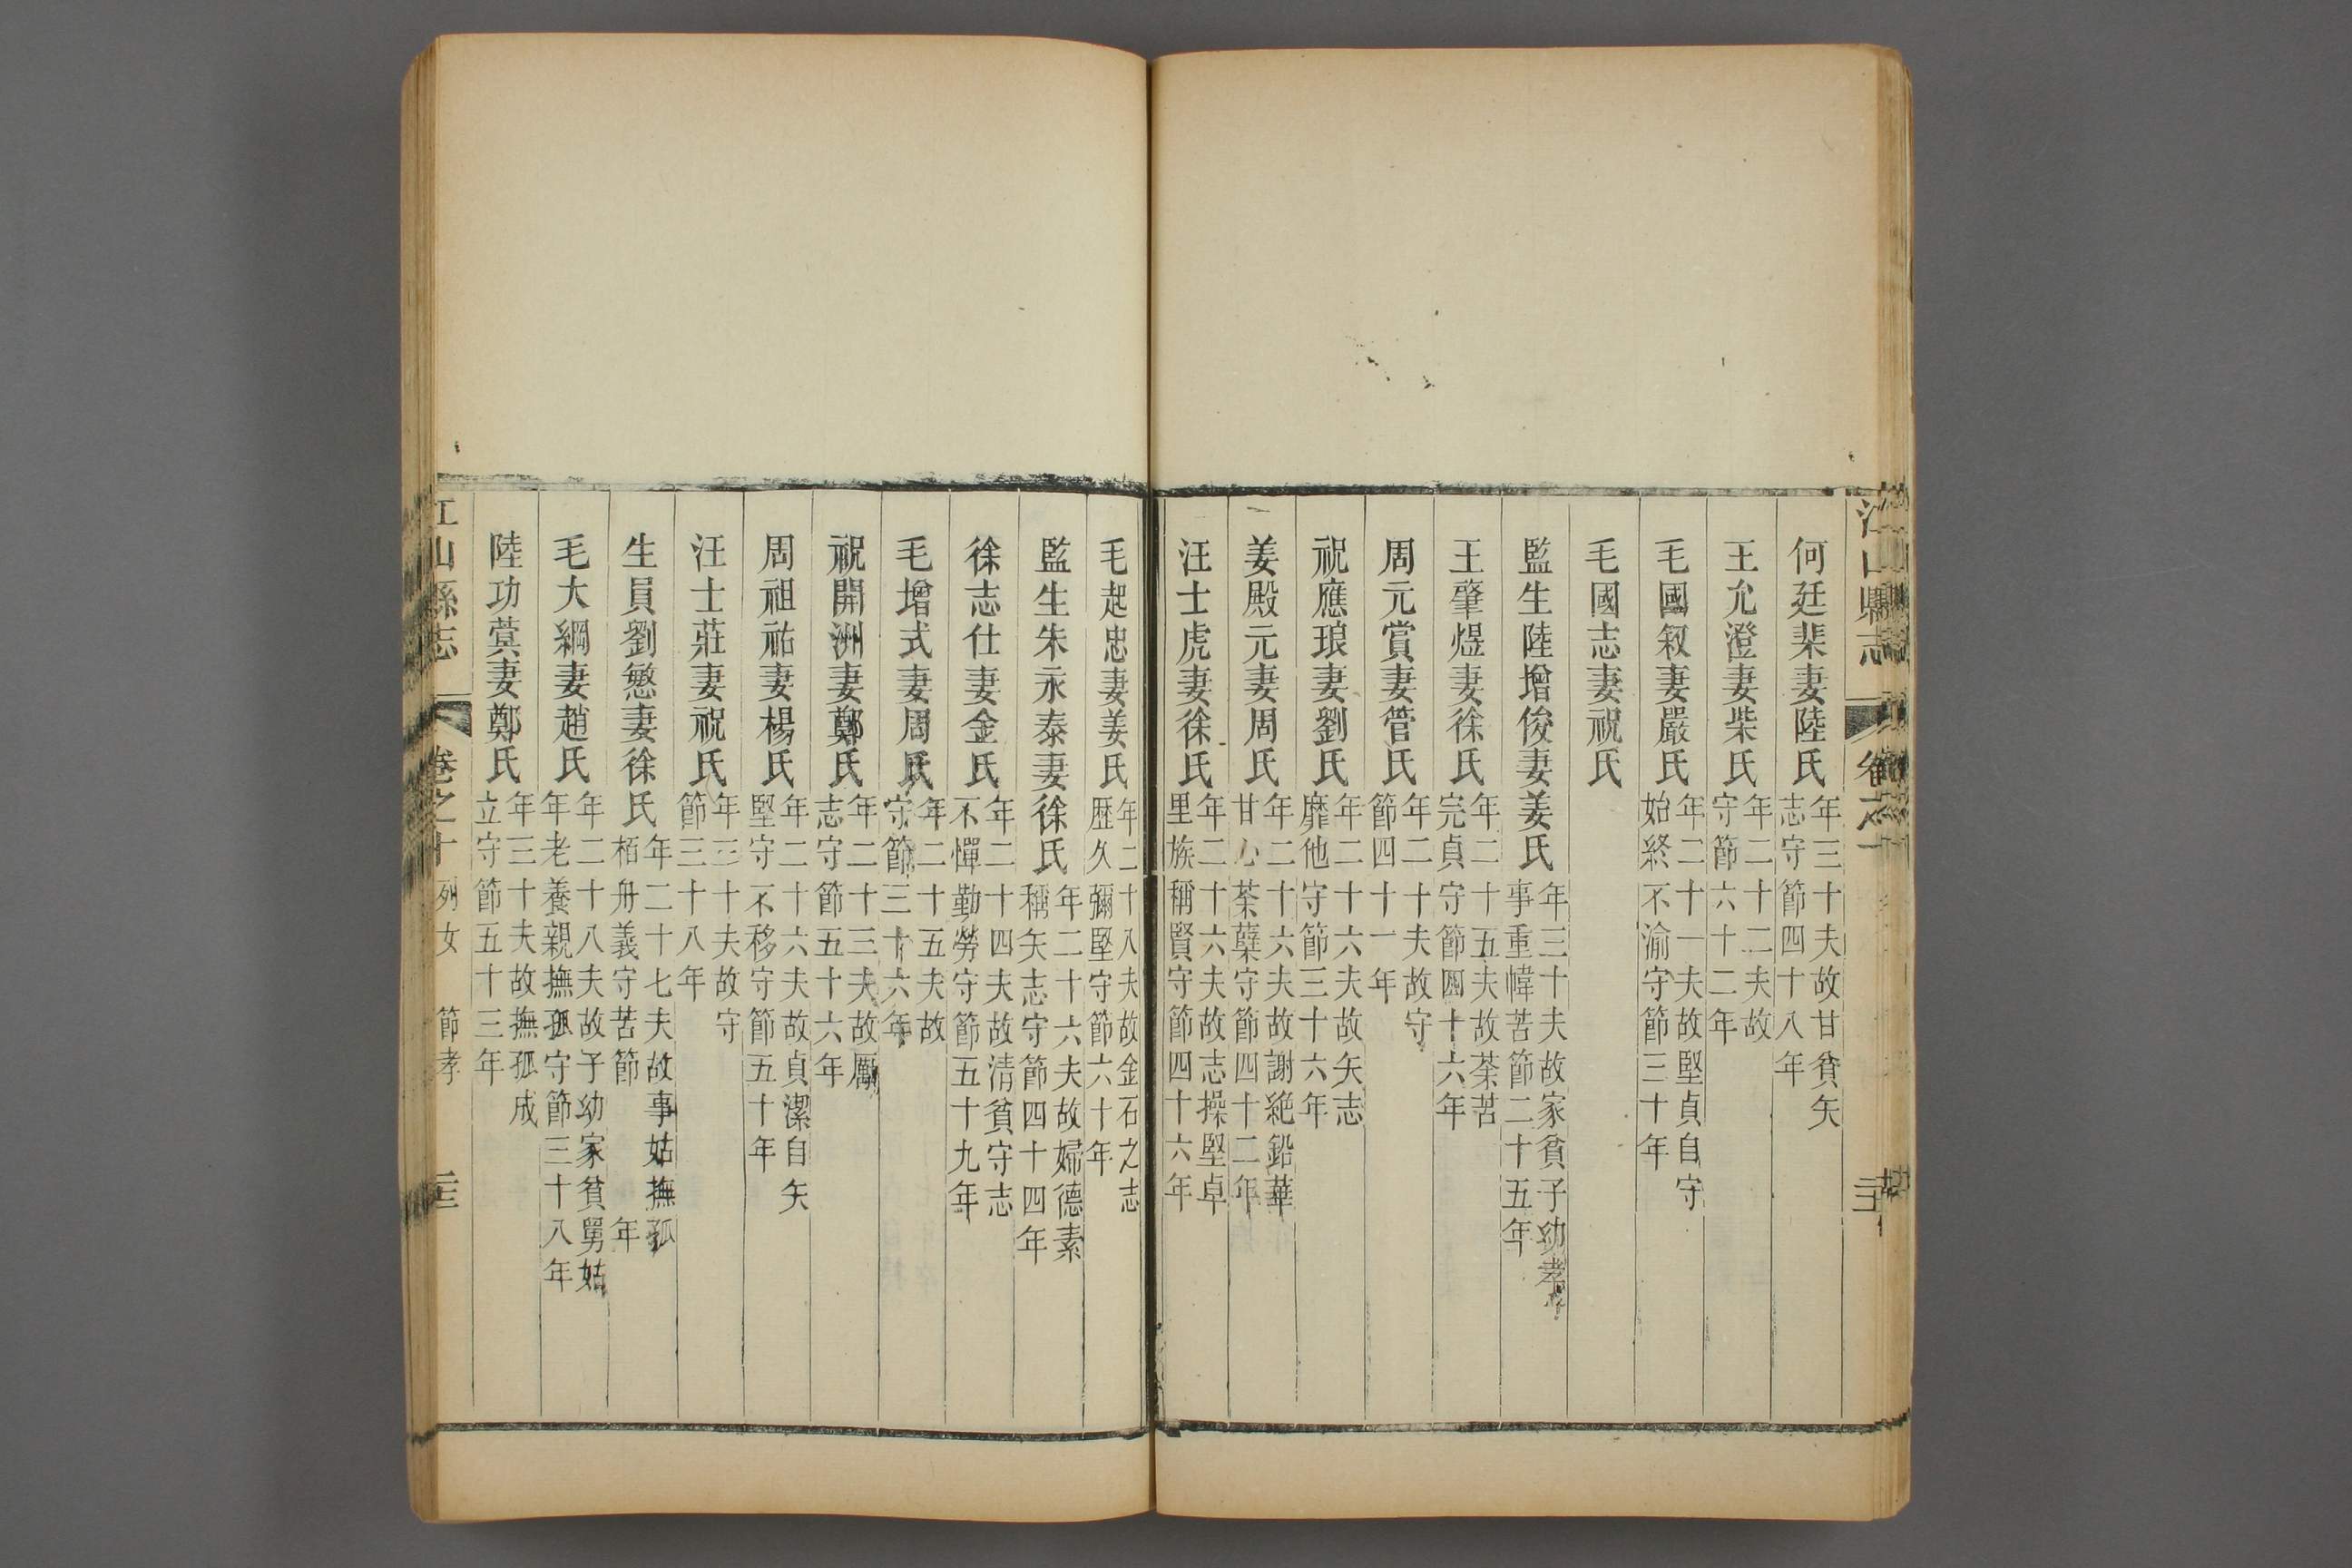 何廷棐妻陸氏年三十夫故甘貧矢志守節四十八年
王允澄妻柴氏年二十二夫故守節六十二年
毛國叙妻嚴氏年二十一夫故堅貞自守始終不渝守節三十年
毛國志妻祝氏
監生陸增俊妻姜氏年三十夫故家貧子幼孝事重幃苦節二十五年
王肇煜妻徐氏年二十五夫故荼苦完貞守節四十六年
周元賞妻管氏年二十夫故守節四十一年
祝應琅妻劉氏年二十六夫故矢志靡他守節三十六年
姜殿元妻周氏年二十六夫故謝絶鉛華甘心荼蘗守節四十二年
汪士虎妻徐氏年二十六夫故志操堅卓里族稱賢守節四十六年
毛起忠妻姜氏年二十八夫故金石之志歷久彌堅守節六十年
監生朱永泰妻徐氏年二十六夫故婦德素稱矢志守節四十四年
徐志仕妻金氏年二十四夫故清貧守志不憚勤勞守節五十九年
毛增式妻周氏年二十五夫故守節三十六年
祝開洲妻鄭氏年二十三夫故厲志守節五十六年
周祖祐妻楊氏年二十六夫故貞潔自矢堅守不移守節五十年
汪士莊妻祝氏年三十夫故守節三十八年
生員劉懋妻徐氏年二十七夫故事姑撫孤栢舟義守苦節 年
毛大綱妻趙氏年二十八夫故子幼家貧舅姑年老養親撫孤守節三十八年
陸功蓂妻鄭氏年三十夫故撫孤成立守節五十三年
江山縣志 卷之十 列女 節孝